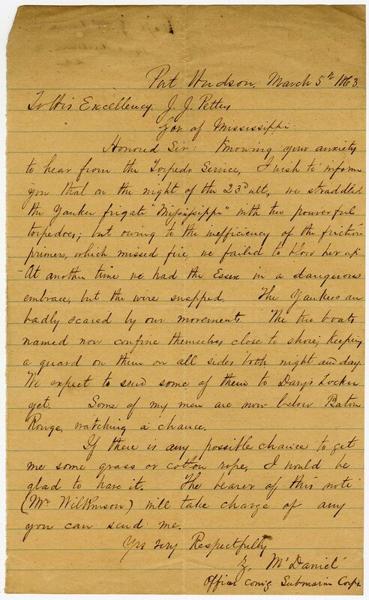 Port Hudson, March 5th 1863
To His Excellency J. J. Pettus
Gov of Mississippi
Honored Sir: Knowing your anxiety
to hear from the Torpedo Service, I wish to inform
you that on the night of the 23d ult, we straddled
the Yankee frigate "Mississippi" with two powerful
torpedoes; but owing to the inefficiency of the friction
primers, which missed fire, we failed to blow her up.
At another time we had the Essex in a dangerous
embrace, but the wire snapped. The Yankees are
badly scared by our movements. The two boats
named now confine themselves close to shore, keeping
a guard on them on all sides both night and day.
We expect to send some of them to Davy's Locker
yet. Some of my men are now below Baton
Rouge, watching a chance.
If there is any possible chance to get
me some grass or cotton rope, I would be
glad to have it. The bearer of this note
(Mr Wilkinson) will take charge of any
you can send me.
Yrs very Respectfully
Z. McDaniel
Officer comg Submarine Corps